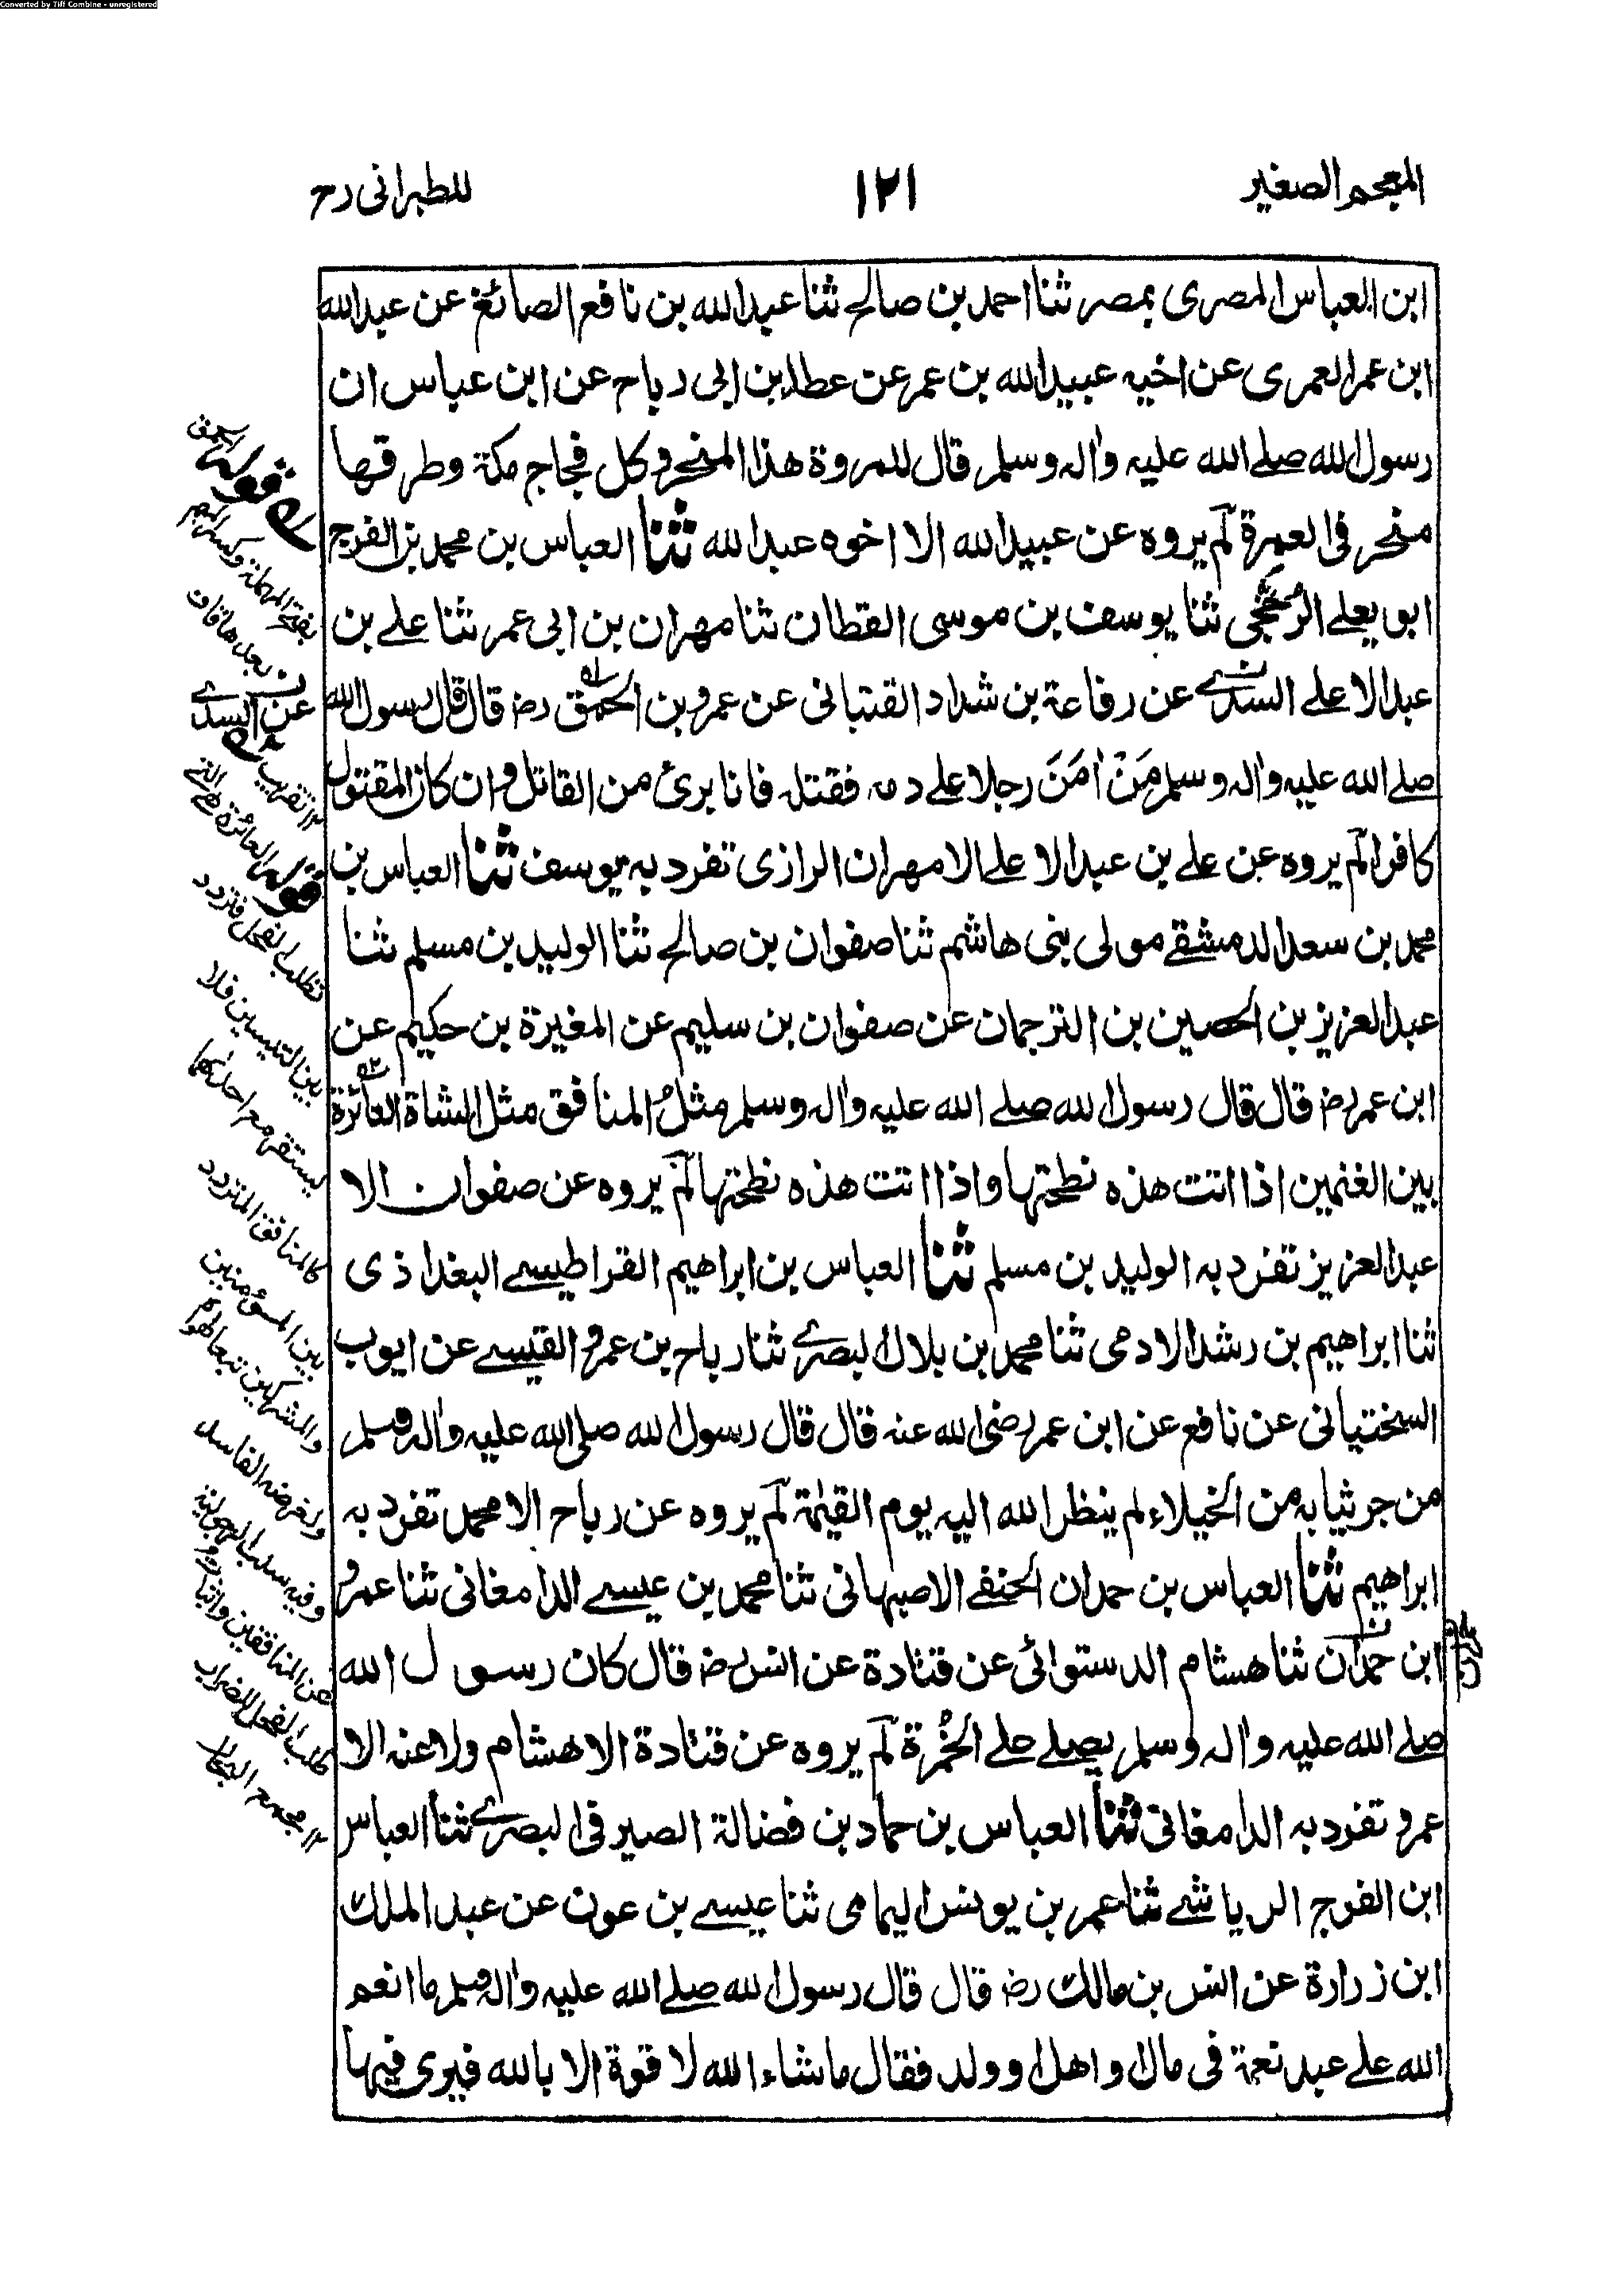 Converted by Tiff Combine - unregistered
المعجم الصغير ١٢١ للطبرانى رح
ابن العباس المصرى بمصر ثنا احمد بن صالح ثنا عبدالله بن نافع الصائغ عن عبدالله
ابن عمر العمرى عن اخيه عبيدالله بن عمر عن عطاء بن ابى رباح عن ابن عباس ان
رسول الله صلے الله عليه واله وسلم قال للمروة هذا المنحر وكل فجاج مكة وطرقها
منحر فى العمرة لم يروه عن عبيدالله الا اخوه عبدالله ثنا العباس بن محمد بن الفرج
ابو يعلے الرُخَّجى ثنا يوسف بن موسى القطان ثنا مهران بن ابى عمر ثنا علے بن
عبد الاعلے السدے عن رفاعة بن شداد القتبانى عن عمرو بن الحمق رض قال قال رسول الله
صلے الله عليه واله وسلم مَنْ اٰمَنَ رجلا علے دمه فقتله فانا برئ من القاتل وان كان المقتول
كافرا لم يروه عن علے بن عبد الاعلے الا مهران الرازى تفرد به يوسف ثنا العباس بن
محمد بن سعد الدمشقے مولى بنى هاشم ثنا صفوان بن صالح ثنا الوليد بن مسلم ثنا
عبد العزيز بن الحصين بن الترجمان عن صفوان بن سليم عن المغيرة بن حكيم عن
ابن عمر رض قال قال رسول الله صلے الله عليه واله وسلم مثل المنافق مثل الشاة العائرة
بين الغنمين اذا اتت هذه نطحتها واذا اتت هذه نطحتها لم يروه عن صفوان الا
عبد العزيز تفرد به الوليد بن مسلم ثنا العباس بن ابراهيم القراطيسے البغداذى
ثنا ابراهيم بن رشد الادمى ثنا محمد بن بلال البصرے ثنا رباح بن عمرو القيسے عن ايوب
السختيانى عن نافع عن ابن عمر رضى الله عنه قال قال رسول الله صلى الله عليه واله وسلم
من جر ثيابه من الخيلاء لم ينظر الله اليه يوم القيٰمة لم يروه عن رباح الا محمد تفرد به
ابراهيم ثنا العباس بن حمدان الحنفے الاصبهانى ثنا محمد بن عيسے الدامغانى ثنا عمرو
ابن حمران ثنا هشام الدستوائى عن قتادة عن انس رض قال كان رسول الله
صلے الله عليه واله وسلم يصلے علے الخُمرة لم يروه عن قتادة الا هشام ولا عنه الا
عمرو تفرد به الدامغانى ثنا العباس بن حماد بن فضالة الصيرفى البصرے ثنا العباس
ابن الفرج الرياشے ثنا عمر بن يونس اليمامى ثنا عيسے بن عون عن عبد الملك
ابن زرارة عن انس بن مالك رض قال قال رسول الله صلے الله عليه واله وسلم ما انعم
الله علے عبد نعمة فى مال واهل وولد فقال ماشاء الله لا قوة الا بالله فيرى فيها
قوله الحمق
بفتح المهملة وكسر الميم
بعدها قاف
عن السدے
١٢ تقريب
قوله العائرة هے التے
تطلب الفحل فتردد
بين التيسين فلا
يستقر مع احدهما
كالمنافق المتردد
بين المؤمنين
والمشركين تبعا لهواه
ولغرضه الفاسد
وفيه سلب الرجولية
عن المنافقين
كطلب الفحل للضراب
١٢ مجمع البحار